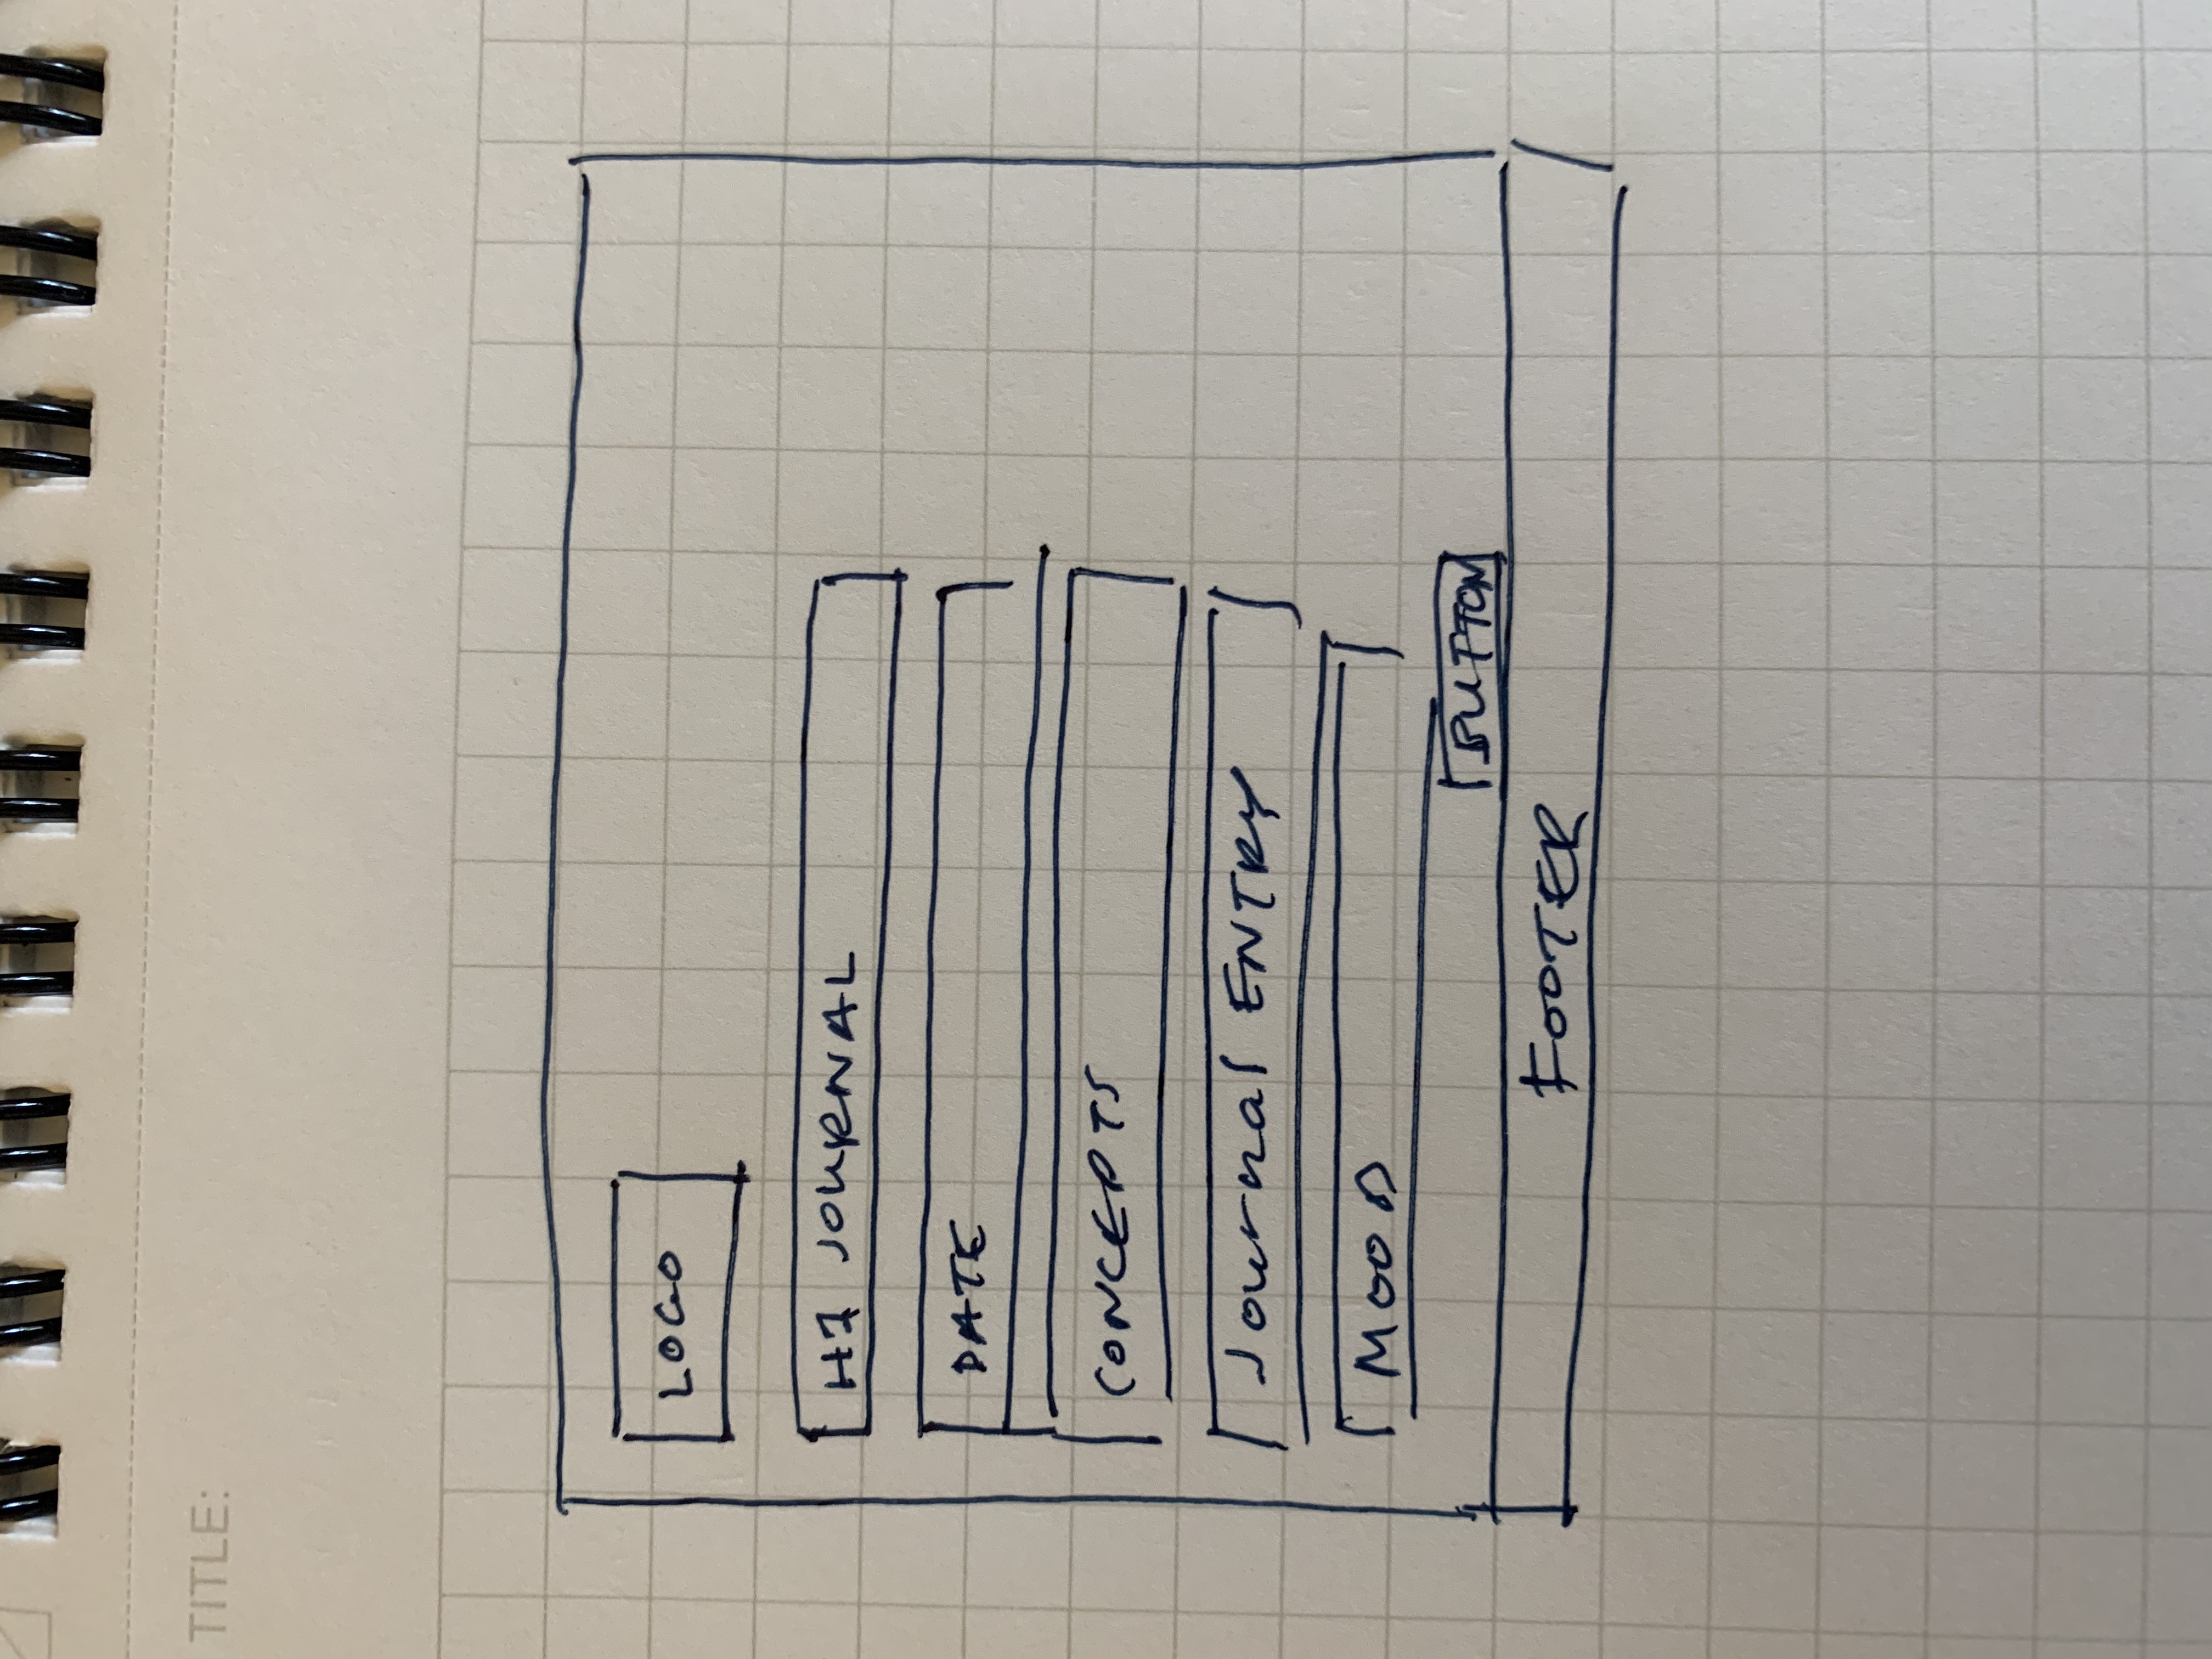 TITLE:
LOGO
H1 JOURNAL
DATE
CONCEPTS
Journal ENTRY
MOOD
BUTTON
FOOTER